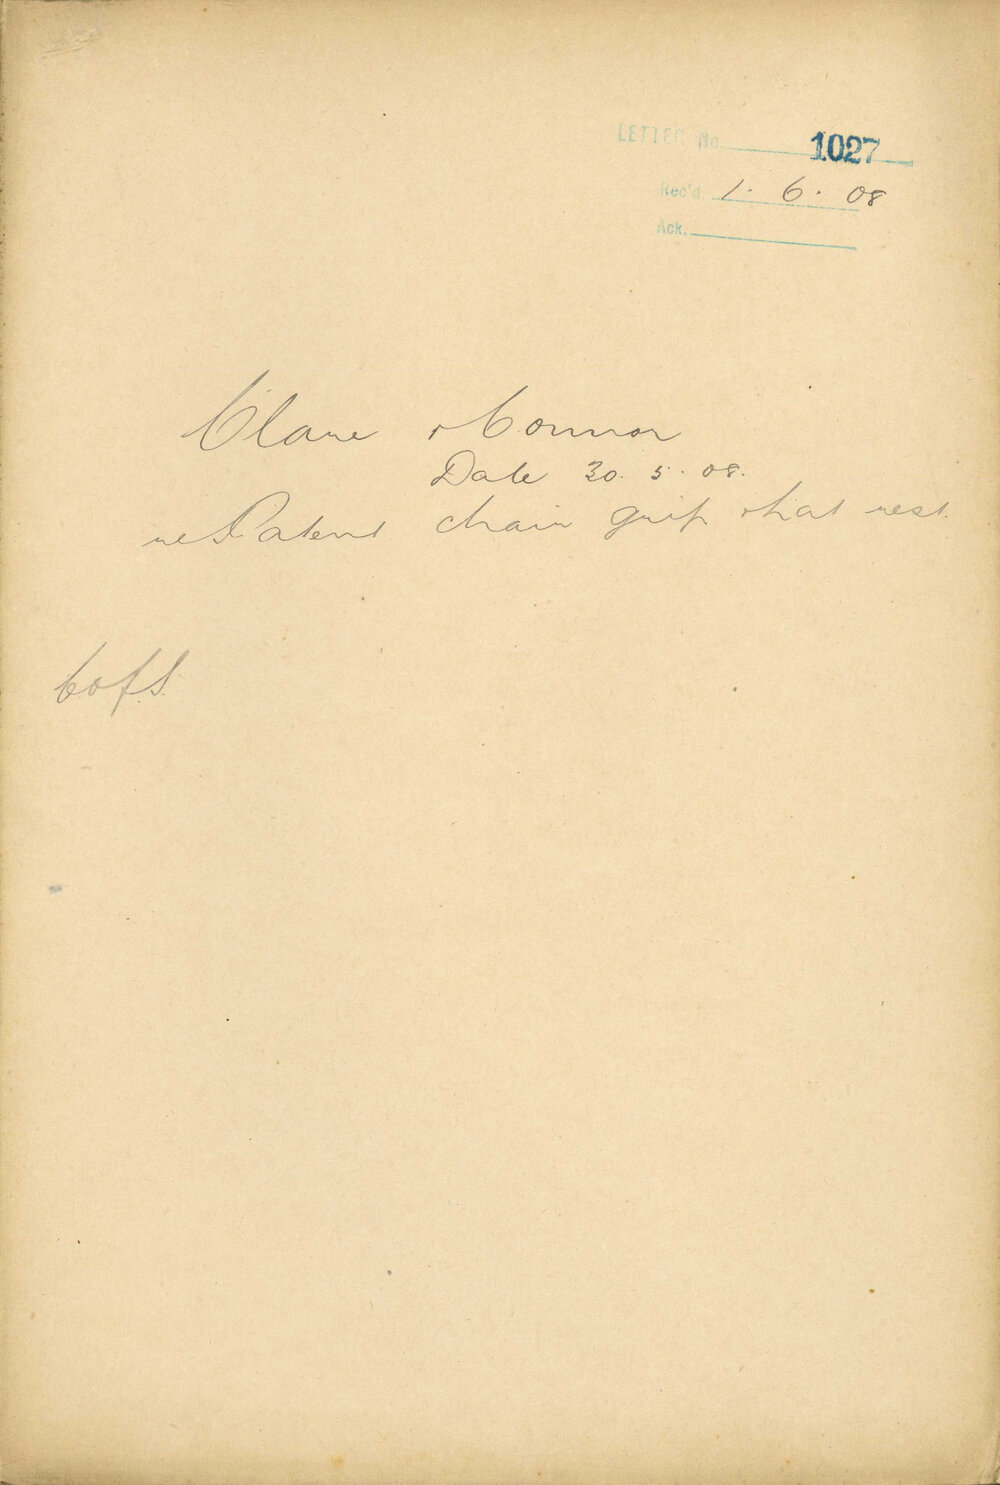 LETTER No. 1027
Rec'd 1. 6. 08
Ack.
Clare & Connor
Date 30. 5. 08.
re Patent chair grip & hat rest.
C.of.S.